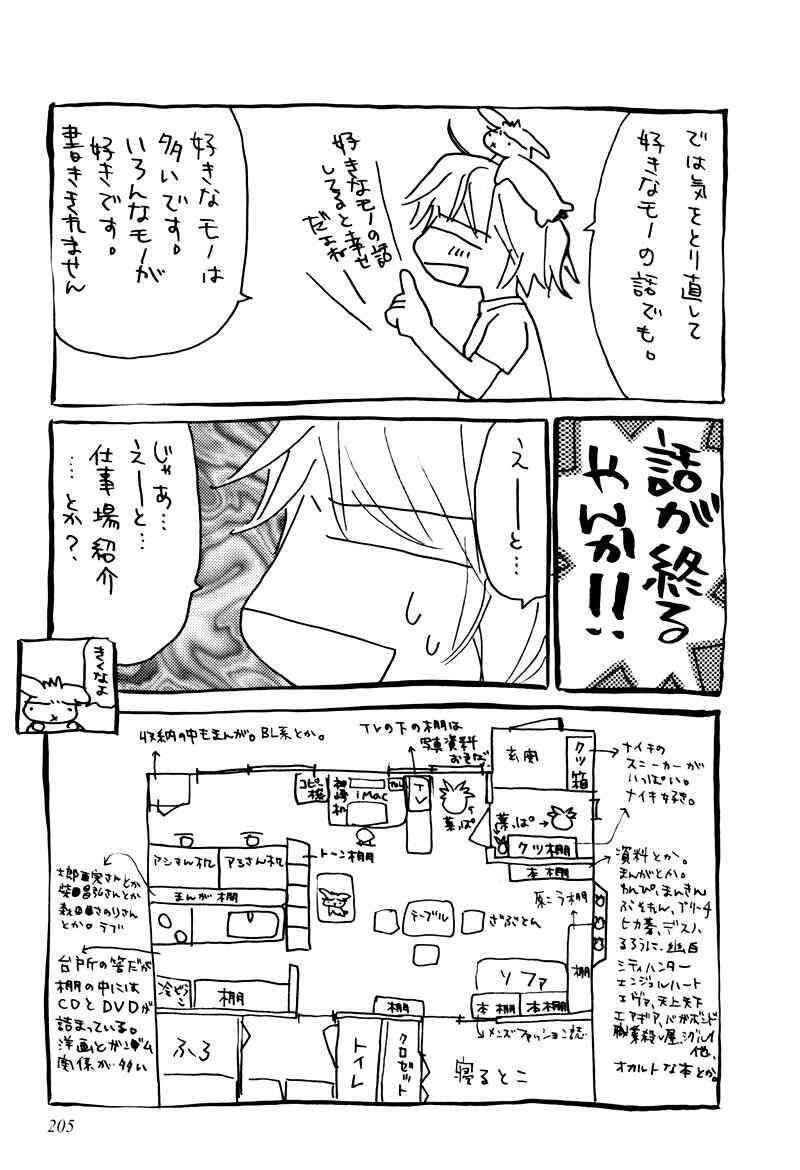 では気をとり直して
好きなモノの話でも。
好きなモノの話
してると幸せ
だよね
好きなモノは
多いです。
いろんなモノが
好きです。
書ききれません
話が終る
やんか!!
えーと…
じゃあ…
えーと…
仕事場紹介
…とか?
きくなよ
収納の中もまんが。BL系とか。
TVの下の棚は
写真資料
おそば
玄関
クツ箱
ナイキの
スニーカーが
いっぱい。
ナイキ好き。
コピー機
iMac
TV
葉っぱ
葉っぱ
クツ棚
本棚
アシさん机
アシさん机
トーン棚
まんが棚
テーブル
ざぶとん
原こう棚
棚
ソファ
本棚
本棚
メンズファッション誌
冷ぞうこ
棚
棚
ふろ
トイレ
クロゼット
寝るとこ
とか。ラブ
台所の筈だが
棚の中には
CDとDVDが
詰まっている。
洋画とガンダム
関係が多い
資料とか。
まんがとか。
わんぴ、まんきん
ぶそれん、ブリーチ
ヒカ碁、デスノ、
るろうに、
シティハンター
エンジェルハート
エヴァ、天上天下
エアギア、バガボンド
職業殺し屋、シグルイ
他、
オカルトな本とか。
205